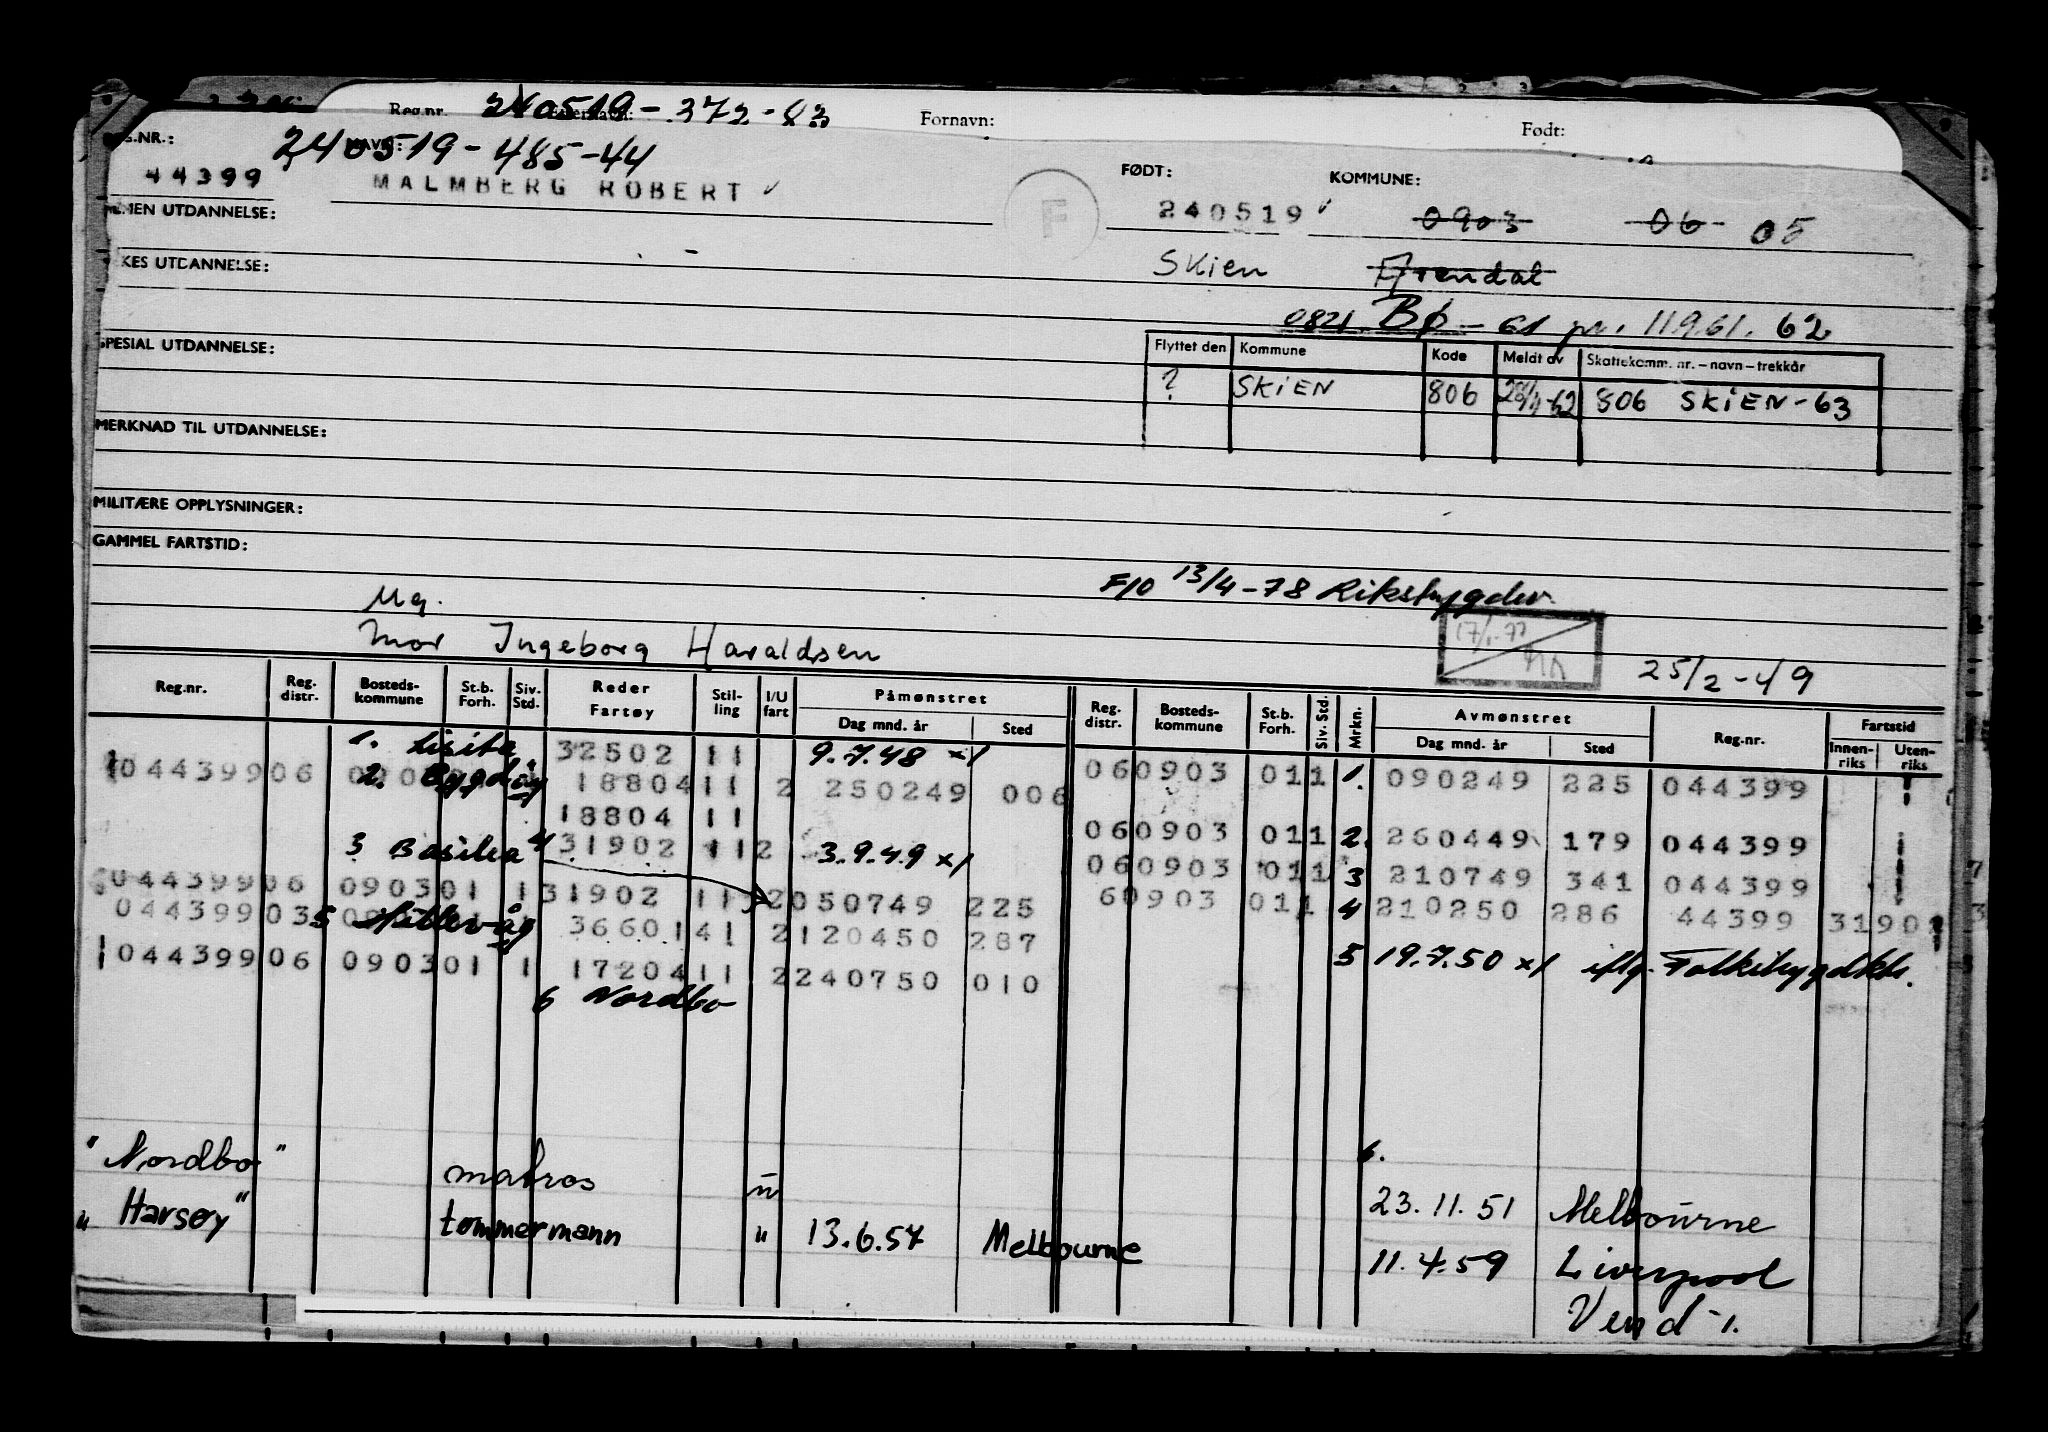 Reg.nr. 240519-372-83 Fornavn: Født:
NAVN: 240519-485-44
44399 MALMBERG ROBERT FØDT: KOMMUNE:
F 240519 0903 06 05
UTDANNELSE: Skien Arendal
UTDANNELSE: 0821 Bø - 61 11961. 62
SPESIAL UTDANNELSE: Flyttet den Kommune Kode Meldt av Skattekomm. nr. – navn – trekkår
? SKIEN 806 28/1-62 806 SKIEN - 63
MERKNAD TIL UTDANNELSE:
MILITÆRE OPPLYSNINGER:
GAMMEL FARTSTID:
F10 13/4-78 Rikstrygdev.
Ug.
Mor Ingeborg Haraldsen 17/1-77 25/2-49
Reg.nr. Reg. distr. Bosteds-kommune St.b. Forh. Siv. Std. Reder Fartøy Stil-ling I/U fart Påmønstret Dag mnd. år Sted Reg. distr. Bosteds-kommune St.b. Forh. Siv. Std. Mrkn. Avmønstret Dag mnd. år Sted Reg.nr. Fartstid Innen-riks Uten-riks
1. 32502 11 9.7.48 x1 060903 011 1. 090249 225 044399
1 044399 06 2. Bygdøy 18804 11 2 250249 006
18804 11 060903 011 2. 260449 179 044399
3 Basilea 4 31902 11 2 3.9.49 x1 060903 011 3 210749 341 044399
044399 06 0903 01 1 31902 11 2 050749 225 60903 011 4 210250 286 44399 3190
044399 03 5 36601 41 2 120450 287
5 19.7.50 x1 iflg.
1 044399 06 0903 01 1 17204 11 2 240750 010
6 Nordbo
6.
"Nordbo" matros u 23.11.51 Melbourne
" Harsøy" tømmermann " 13.6.57 Melbourne 11.4.59 Liverpool
Vend -1.